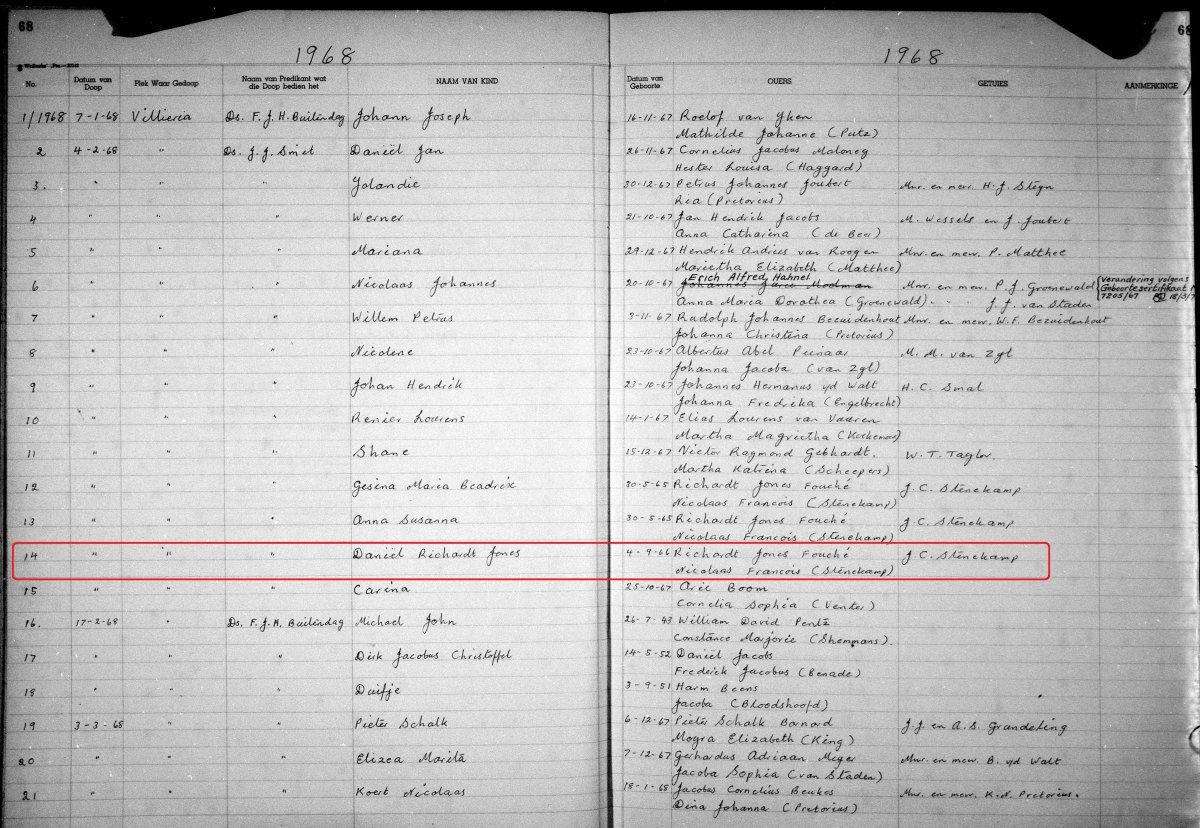 68 68
1968 1968
No. Datum van Doop Plek Waar Gedoop Naam van Predikant wat die Doop bedien het NAAM VAN KIND Datum van Geboorte OUERS GETUIES AANMERKINGE
1/1968 7-1-68 Villieria Ds. F. J. H. Buitendag Johann Joseph 16-11-67 Roelof van Yken
Mathilde Johanne (Putz)
2 4-2-68 " Ds. J. J. Smit Daniël Jan 26-11-67 Cornelius Jacobus Maloney
Hester Louisa (Haggard)
3. " " " Jolandie 30-12-67 Petrus Johannes Joubert Mnr. en mev. H. J. Steyn
Ria (Pretorius)
4 " " " Werner 21-10-67 Jan Hendrick Jacobs M. Wessels en J. Joubert
Anna Catharina (de Beer)
5 " " " Mariana 29-12-67 Hendrik Andries van Rooyen Mnr. en mev. P. Matthee
Marietha Elizabeth (Matthee)
Erich Alfred Hahnel Verandering volgens
6 " " " Nicolaas Johannes 20-10-67 Johannes Mnr. en mev. P. J. Groenewald Geboortesertifikaat
Anna Maria Dorothea (Groenewald) " " " J. J. van Staden 7205/67
7 " " " Willem Petrus 3-11-67 Rudolph Johannes Bezuidenhout Mnr. en mev. W. F. Bezuidenhout
Johanna Christina (Pretorius)
8 " " " Nicolene 23-10-67 Albertus Abel Pienaar M. M. van Zyl
Johanna Jacoba (van Zyl)
9 " " " Johan Hendrik 23-10-67 Johannes Hermanus v/d Walt H. C. Smal
Johanna Fredrika (Engelbrecht)
10 " " " Renier Lourens 14-1-67 Elias Lourens van Vuuren
Martha Magrietha (Koekemoer)
11 " " " Shane 15-12-67 Victor Raymond Gebhardt. W. T. Taylor.
Martha Katrina (Scheepers)
12 " " " Gesina Maria Beadrix 30-5-65 Richardt Jones Fouché J. C. Stenekamp
Nicolaas Francois (Stenekamp)
13 " " " Anna Susanna 30-5-65 Richardt Jones Fouché J. C. Stenekamp
Nicolaas Francois (Stenekamp)
14 " " " Daniël Richardt Jones 4-9-66 Richardt Jones Fouché J. C. Stenekamp
Nicolaas Francois (Stenekamp)
15 " " " Carina 25-10-67 Arie Boom
Cornelia Sophia (Venter)
16. 17-2-68 " Ds. F. J. H. Buitendag Michael John 26-7-43 William David Pentz
Constance Marjorie (Shemmans).
17 " " " Dirk Jacobus Christoffel 14-5-52 Daniël Jacobs
Fredrick Jacobus (Benade)
18 " " " Duifje 3-9-51 Harm Beens
Jacoba (Bloodshoofd)
19 3-3-68 " " Pieter Schalk 6-12-67 Pieter Schalk Barnard J. J. en A. S. Grandeling
Moyra Elizabeth (King)
20 " " " Elizea Maritâ 7-12-67 Gerhardus Adriaan Meyer Mnr. en mev. B. v/d Walt
Jacoba Sophia (van Staden)
21 " " " Koert Nicolaas 18-1-68 Jacobus Cornelius Beukes Mnr. en mev. K. N. Pretorius.
Dina Johanna (Pretorius)